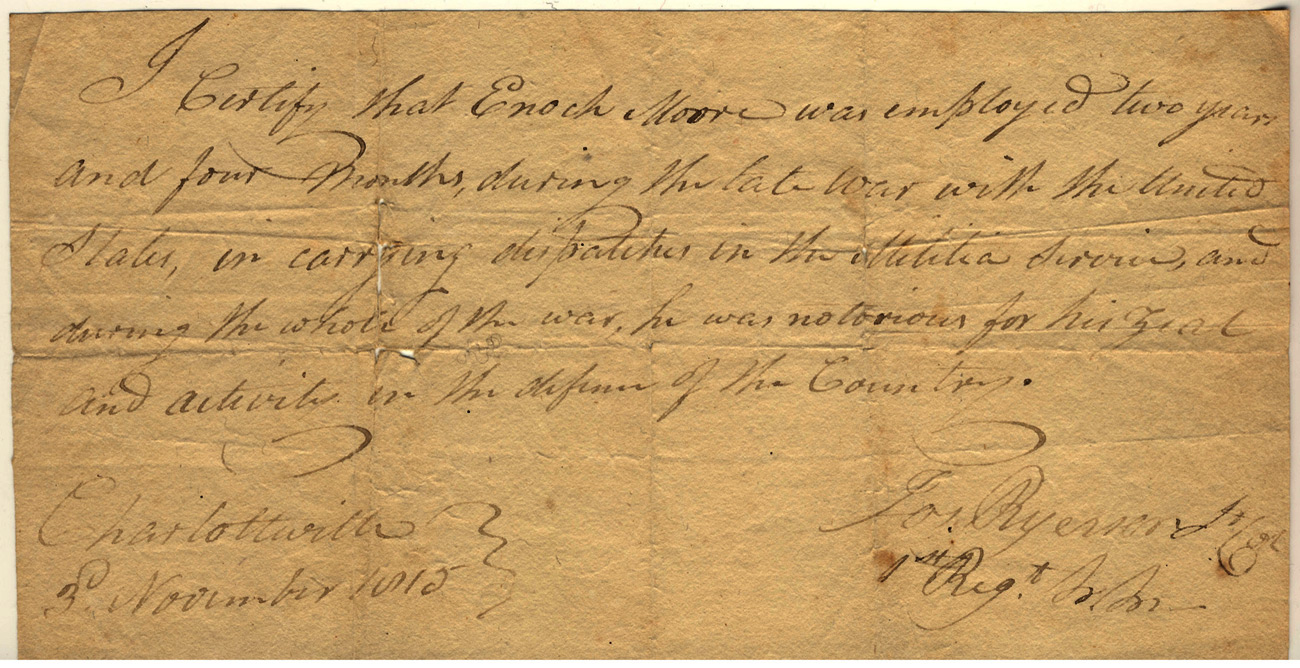 I Certify that Enoch Moore was employed two years
and four Months, during the late War with the United
States, in carrying dispatches in the Militia Service, and
during the whole of the war, he was notorious for his zeal
and activity in the defense of the Country.
Charlotteville
3d November 1815
Jos. Ryerson Lt Col
1st Regt